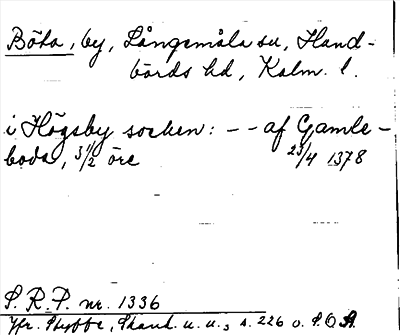 Böta, by, Långemåla sn, Hand-
börds hd, Kalm. l.
i Högsby socken: - - af Gamle-
boda, 3 1/2 öre 23/4 1378
S. R. P. nr. 1336
Jfr. Stybbe, Skand. u. u., s. 226 o. S O Ä.